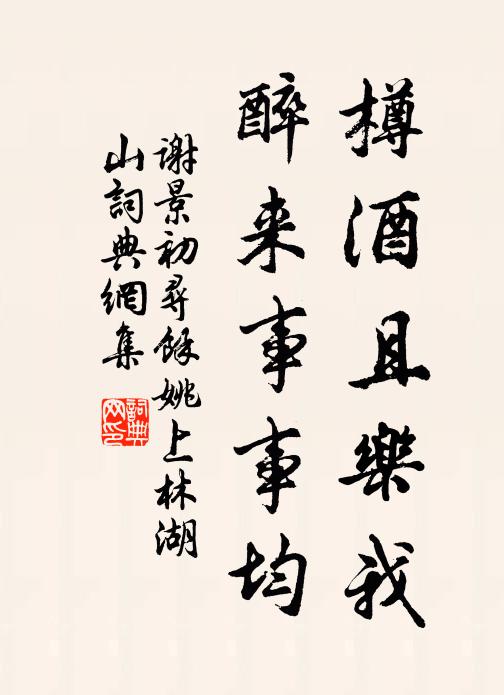 樽酒且樂我
醉来事事均
謝景初尋餘姚上林湖
山詞典網集
詞典
网印